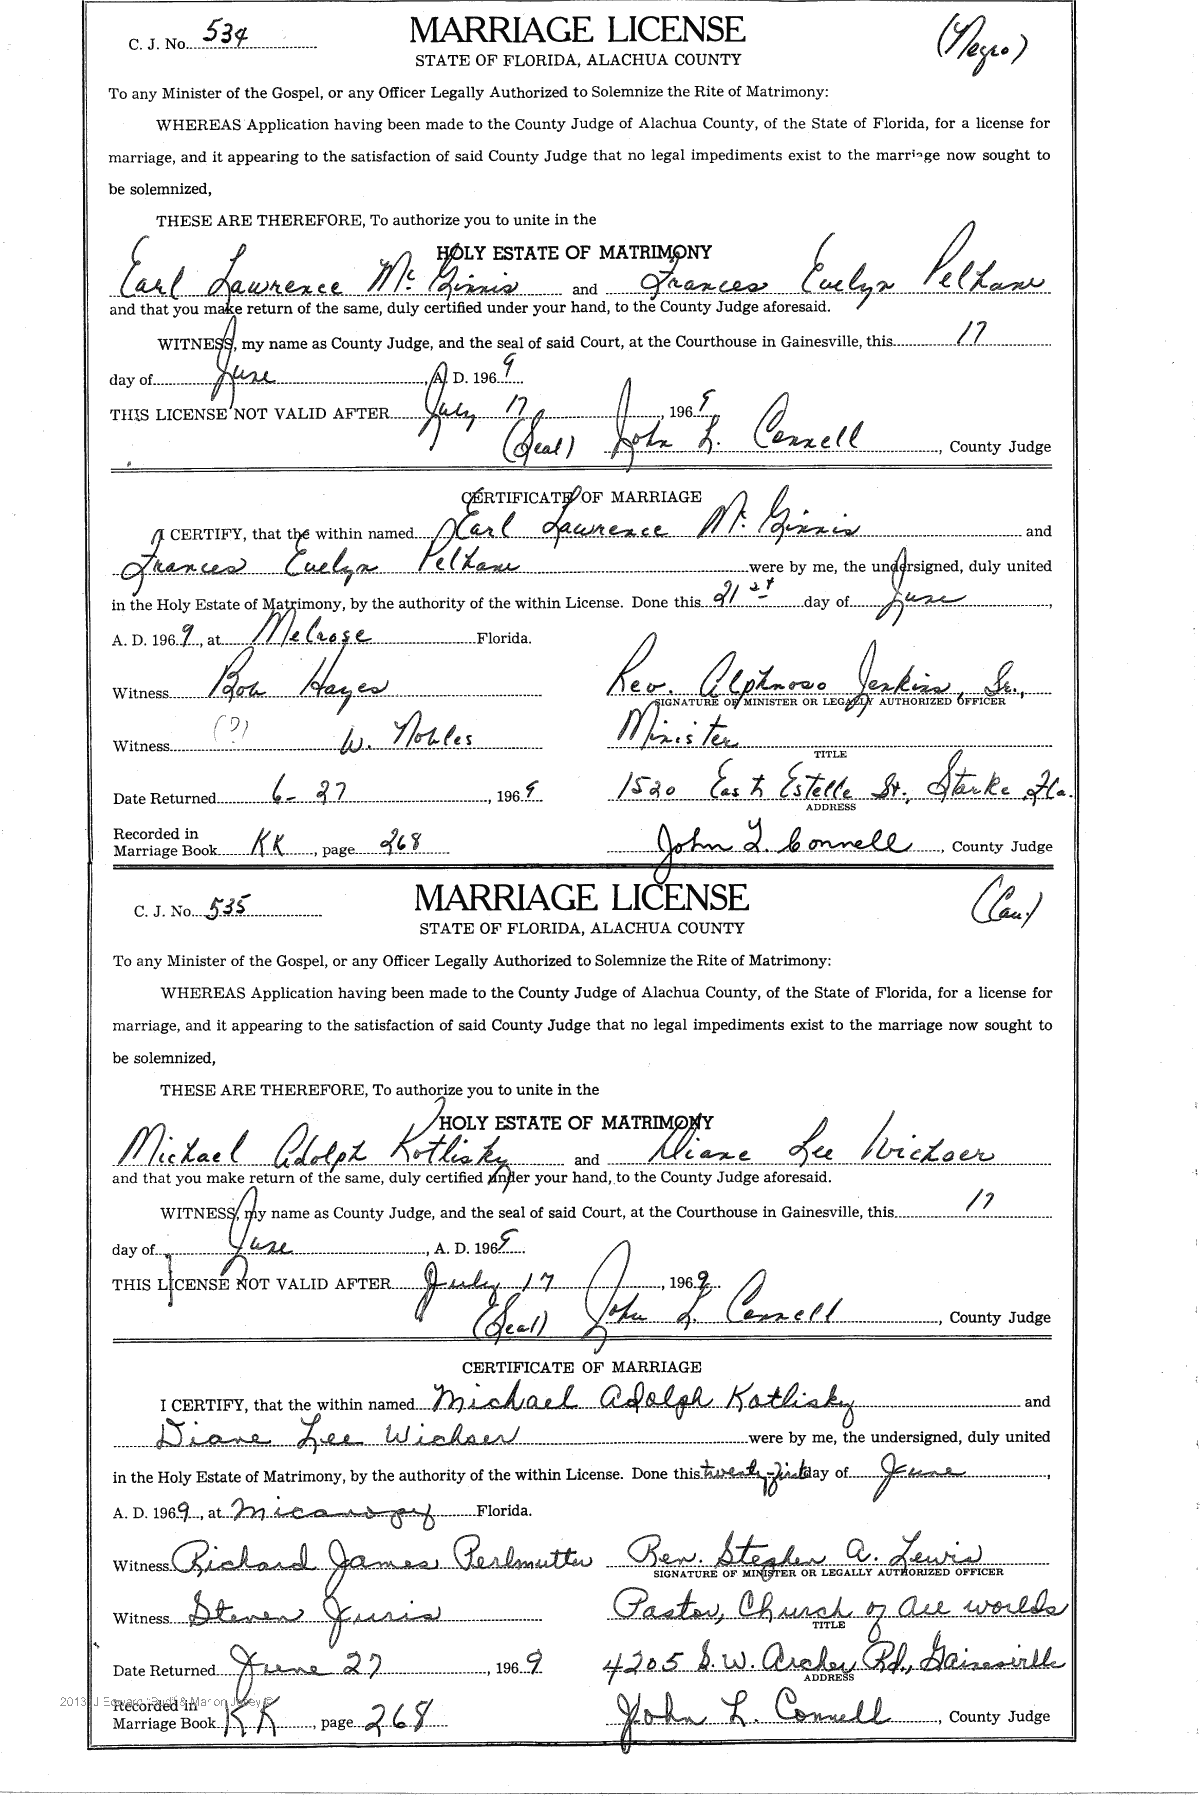 C. J. No. 534 MARRIAGE LICENSE (Negro)
STATE OF FLORIDA, ALACHUA COUNTY
To any Minister of the Gospel, or any Officer Legally Authorized to Solemnize the Rite of Matrimony:
WHEREAS Application having been made to the County Judge of Alachua County, of the State of Florida, for a license for
marriage, and it appearing to the satisfaction of said County Judge that no legal impediments exist to the marriage now sought to
be solemnized,
THESE ARE THEREFORE, To authorize you to unite in the
HOLY ESTATE OF MATRIMONY
Earl Lawrence McGinnis and Frances Evelyn Pelham
and that you make return of the same, duly certified under your hand, to the County Judge aforesaid.
WITNESS, my name as County Judge, and the seal of said Court, at the Courthouse in Gainesville, this 17
day of June, A. D. 1969
THIS LICENSE NOT VALID AFTER July 17, 1969
(Seal) John L. Connell, County Judge
CERTIFICATE OF MARRIAGE
I CERTIFY, that the within named Earl Lawrence McGinnis and
Frances Evelyn Pelham were by me, the undersigned, duly united
in the Holy Estate of Matrimony, by the authority of the within License. Done this 21st day of June,
A. D. 1969, at Melrose Florida.
Witness Bob Hayes Rev. Alphnoso Jenkins, Sr.,
SIGNATURE OF MINISTER OR LEGALLY AUTHORIZED OFFICER
Witness (?) W. Nobles Minister
TITLE
Date Returned 6-27, 1969 1520 East Estelle St., Starke, Fla.
ADDRESS
Recorded in
Marriage Book KK, page 268 John L. Connell, County Judge
C. J. No. 535 MARRIAGE LICENSE (Cau.)
STATE OF FLORIDA, ALACHUA COUNTY
To any Minister of the Gospel, or any Officer Legally Authorized to Solemnize the Rite of Matrimony:
WHEREAS Application having been made to the County Judge of Alachua County, of the State of Florida, for a license for
marriage, and it appearing to the satisfaction of said County Judge that no legal impediments exist to the marriage now sought to
be solemnized,
THESE ARE THEREFORE, To authorize you to unite in the
HOLY ESTATE OF MATRIMONY
Michael Adolph Kotlisky and Diane Lee Wichser
and that you make return of the same, duly certified under your hand, to the County Judge aforesaid.
WITNESS, my name as County Judge, and the seal of said Court, at the Courthouse in Gainesville, this 17
day of June, A. D. 1969
THIS LICENSE NOT VALID AFTER July 17, 1969
(Seal) John L. Connell, County Judge
CERTIFICATE OF MARRIAGE
I CERTIFY, that the within named Michael Adolph Kotlisky and
Diane Lee Wichser were by me, the undersigned, duly united
in the Holy Estate of Matrimony, by the authority of the within License. Done this twenty-first day of June,
A. D. 1969, at Micanopy Florida.
Witness Richard James Perlmutter Rev. Stephen A. Lewis
SIGNATURE OF MINISTER OR LEGALLY AUTHORIZED OFFICER
Witness Steven Juris Pastor, Church of All Worlds
TITLE
Date Returned June 27, 1969 4205 S.W. Archer Rd., Gainesville
ADDRESS
Recorded in
Marriage Book KK, page 268 John L. Connell, County Judge